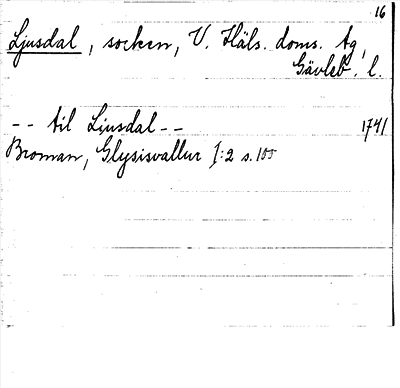 16
Ljusdal, socken, V. Häls. doms. tg,
Gävleb. l.
-- til Liusdal -- 1741
Broman, Glysisvallur I:2 s. 105